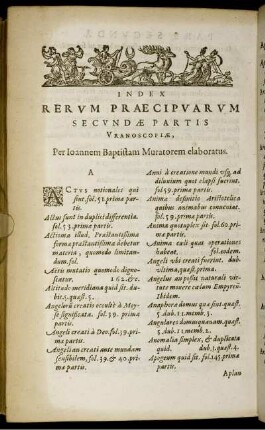 INDEX
RERVM PRAECIPVARVM
SECVNDÆ PARTIS
VRANOSCOPIÆ,
Per Ioannem Baptistam Muratorem elaboratus.
A
ACTVS notionales qui
sint. fol. 51. prima par-
tis.
Actus sunt in duplici differentia.
fol. 53. prima partis.
Aeterna illud, Præstantissima
forma præstantissima debetur
materia, quomodo limitan-
dum. fol.
Aeris mutatio quomodo digno-
scatur. 162. & c.
Altitudo meridiana quid sit. du-
bit. 5. quæst. 5.
Angeloru creatio occult à Moy-
se significata. fol. 39. prima
partis.
Angeli creati à Deo. fol. 39. pri-
ma partis.
Angeli an creati ante mundum
sensibilem. fol. 39. & 40. pri-
ma partis.
Anni à creatione mundi vsq; ad
diluuium quot elapsi fuerint.
fol. 59. prima partis.
Anima definitio Aristotelica
quibus animabus conueniat.
fol. 59. prima partis.
Anima quotuplex sit. fol. 60. pri-
ma partis.
Anima tali quas operationes
habeat. fol. eodem.
Angeli vbi creati fuerint. dub.
vltima, quæst. prima.
Angelus an possit naturali vir-
tute mouere cælum Empyreū.
Ibidem.
Anaphora domus quæ sint. quæst.
5. dub. 11. memb. 2.
Angulares domus quænam. quæst.
5. dub. 11. memb. 2.
Anomalia simplex, & duplicata
quid. dub. 3. quæst. 4.
Apogeum quid sit. fol. 145. prima
partis.
Aplan